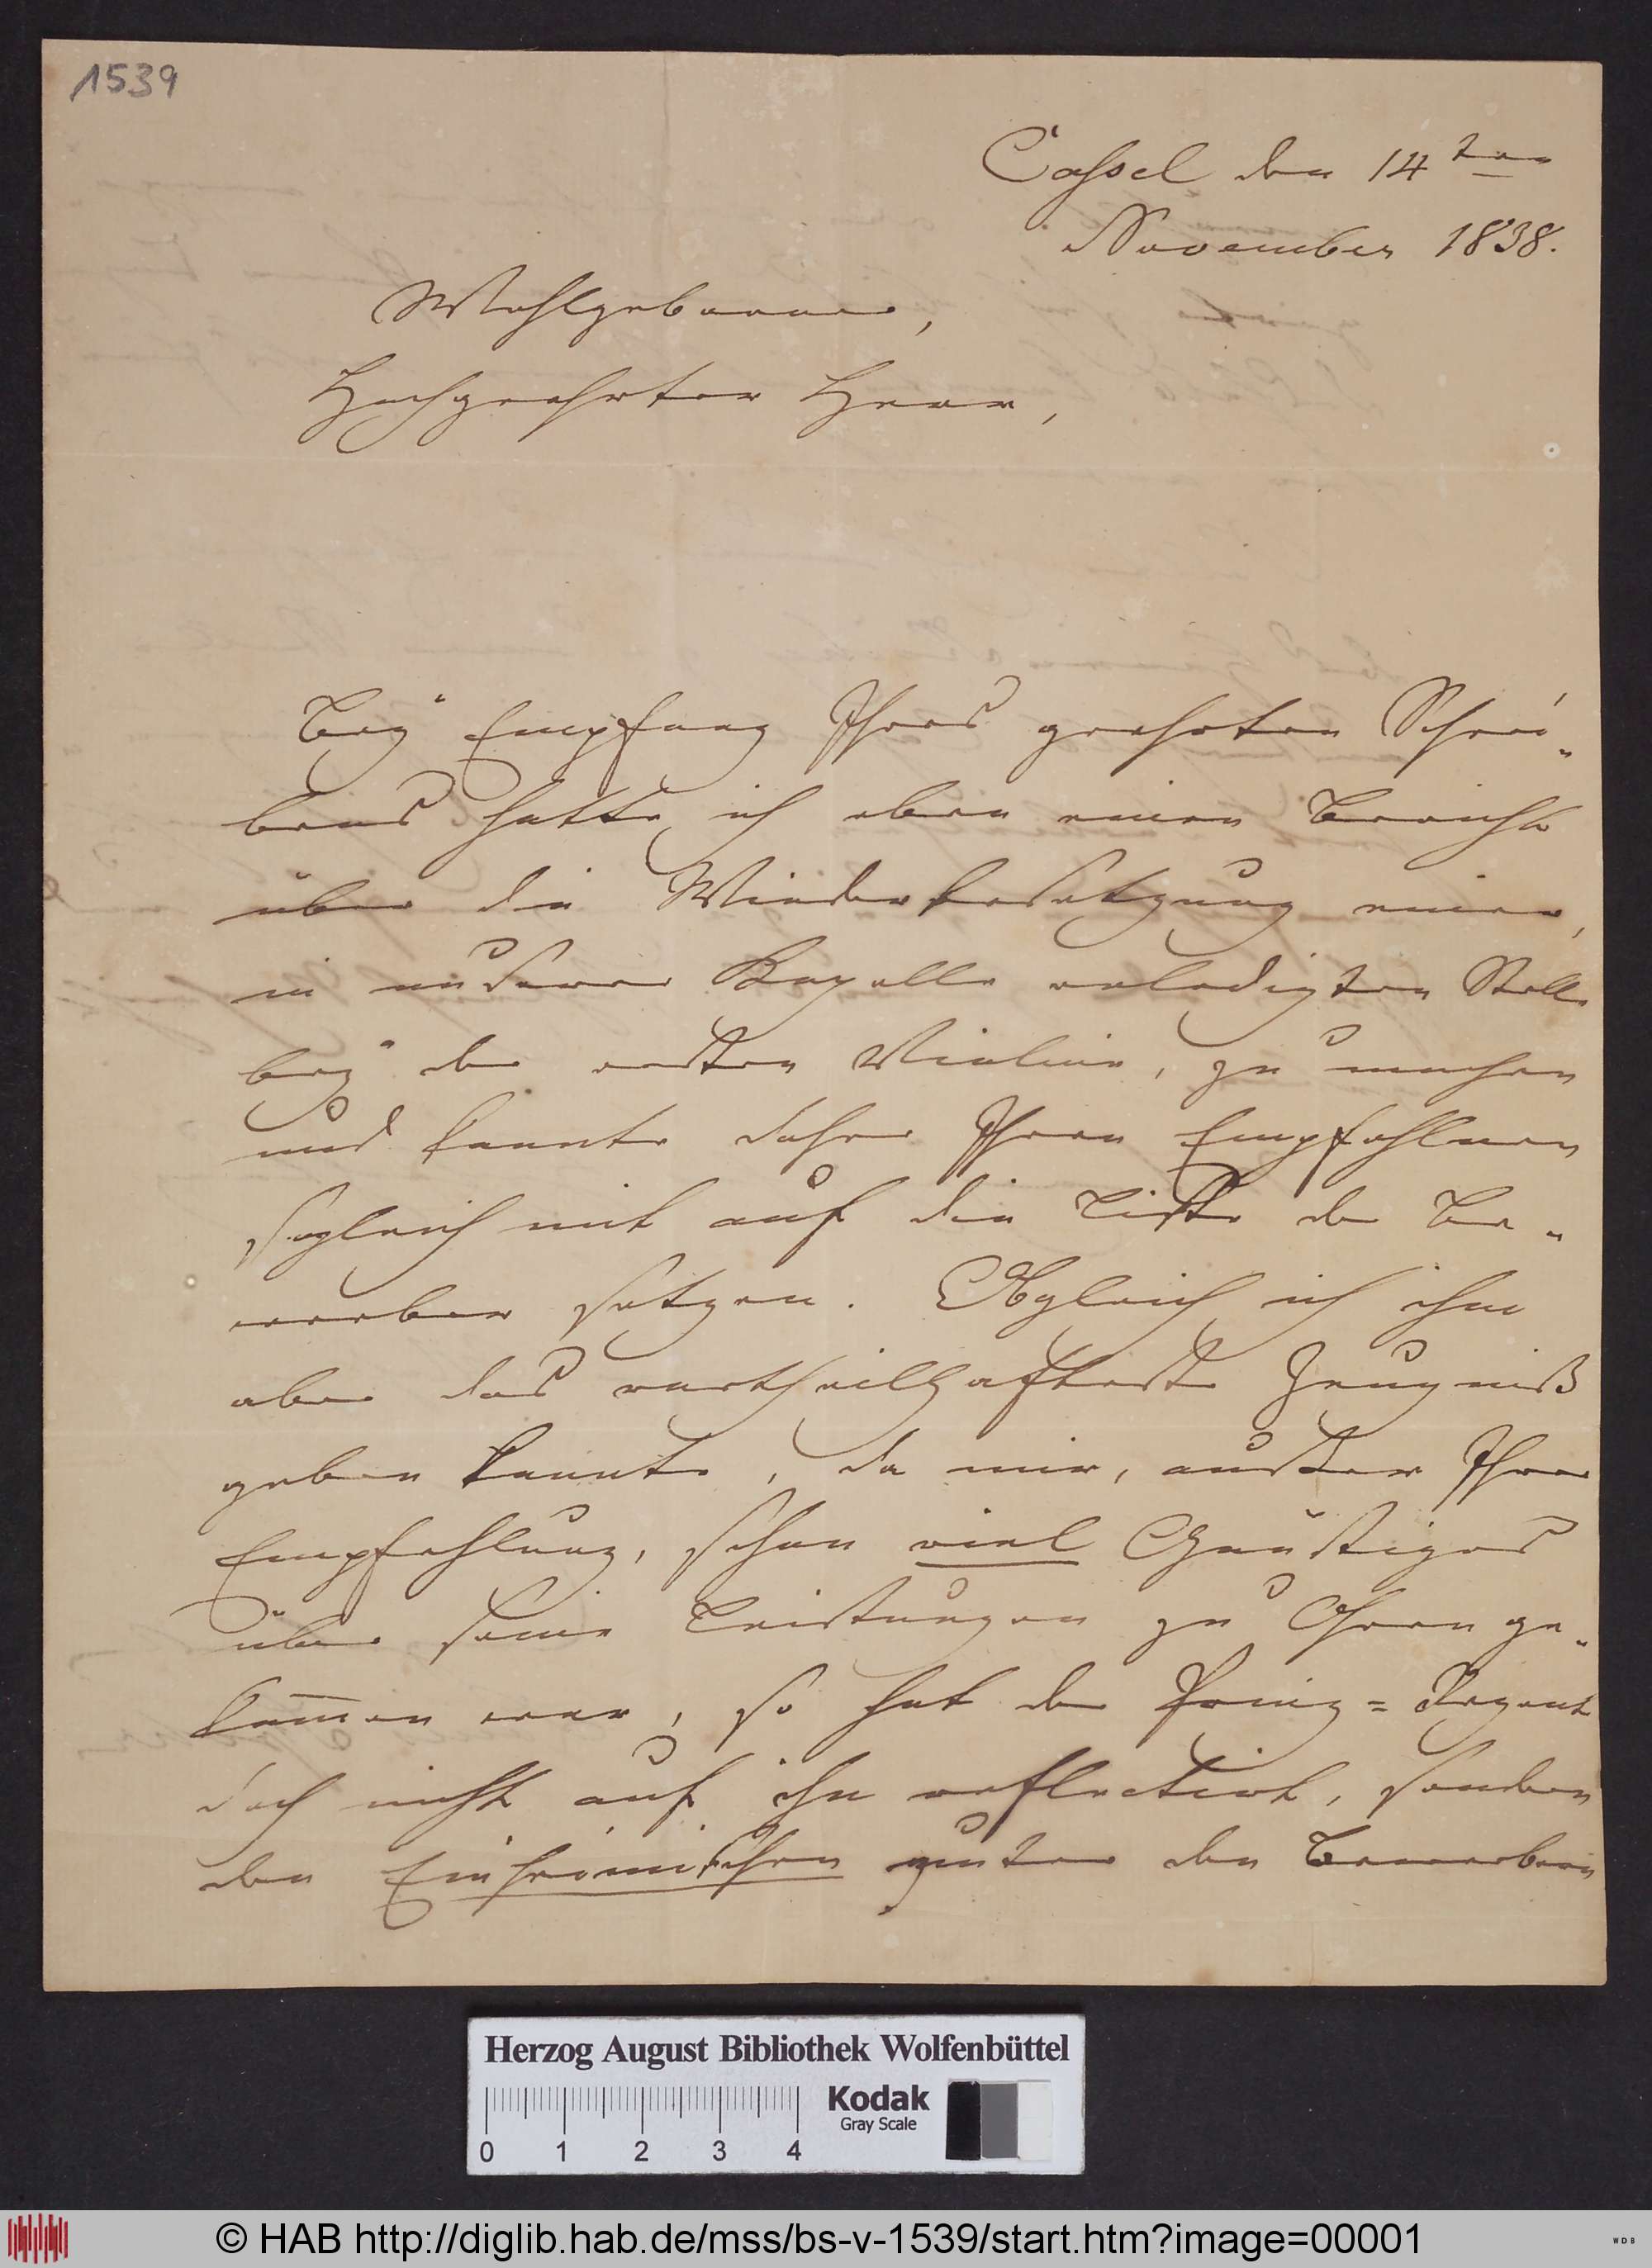 1539
Cassel den 14ten
November 1838.
Wohlgeborner,
Hochgeehrter Herr,
Bey Empfang Ihres geehrten Schrei-
bens hatte ich eben einen Bericht
über die Wiederbesetzung einer,
in unserer Kapelle erledigten Stelle
bey der ersten Violine, zu machen
und konnte daher Ihren Empfohlnen
sogleich mit auf die Liste der Be-
werber setzen. Obgleich ich ihm
aber das vortheilhafteste Zeugniß
geben konnte, da mir, außer Ihrer
Empfehlung, schon viel Günstiges
über seine Leistungen zu Ohren ge-
kom̅en war, so hat der Prinz=Regent
doch nicht auf ihn reflectirt, sondern
den Einheimischen unter den Bewerbern
Herzog August Bibliothek Wolfenbüttel
Kodak
Gray Scale
0 1 2 3 4
© HAB http://diglib.hab.de/mss/bs-v-1539/start.htm?image=00001
WDB